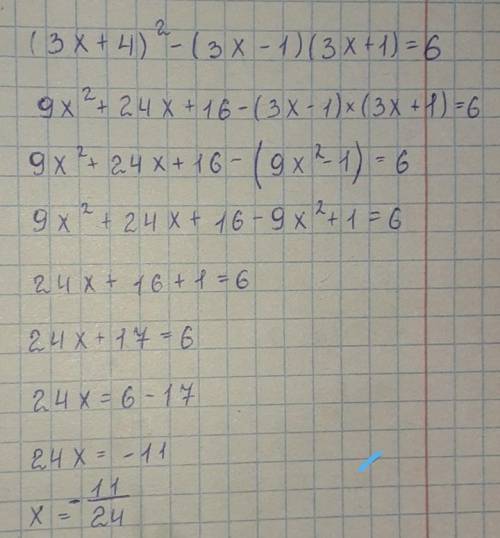 (3x+4)²-(3x-1)(3x+1)=6
9x²+24x+16-(3x-1)×(3x+1)=6
9x²+24x+16-(9x²-1)=6
9x²+24x+16-9x²+1=6
24x+16+1=6
24x+17=6
24x=6-17
24x=-11
x=-11/24